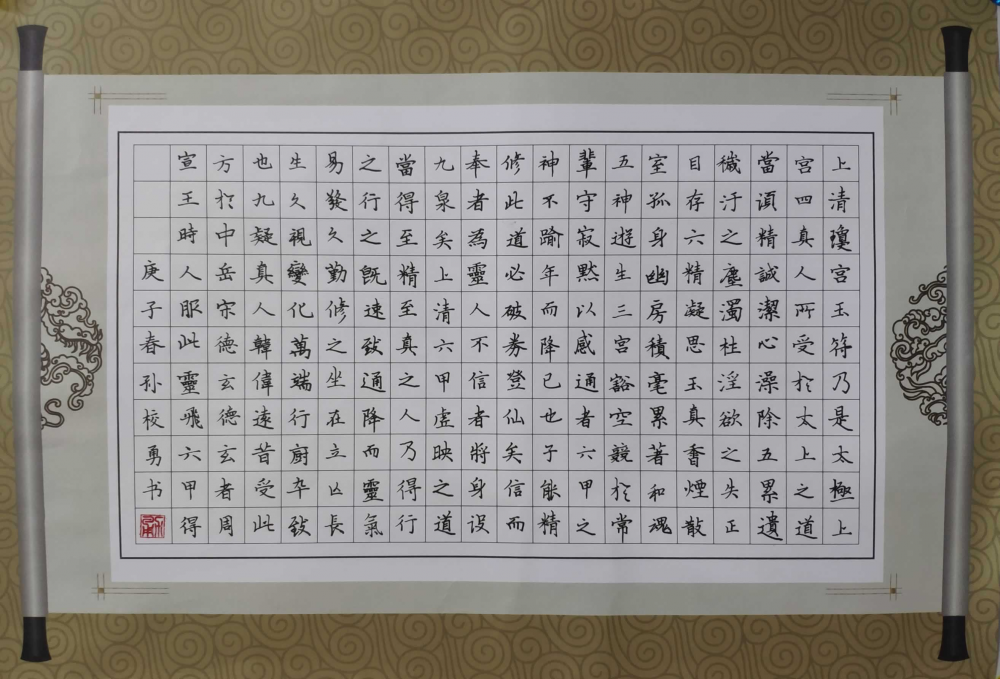 上清瓊宮玉符乃是太極上
宮四真人所受於太上之道
當須精誠潔心澡除五累遺
穢汙之塵濁杜淫欲之失正
目存六精凝思玉真香煙散
室孤身幽房積毫累著和魂
五神遊生三宮豁空競於常
輩守寂默以感通者六甲之
神不踰年而降已也子能精
修此道必破券登仙矣信而
奉者為靈人不信者將身没
九泉矣上清六甲虛映之道
當得至精至真之人乃得行
之行之既速致通降而靈氣
易發久勤修之坐在立亡長
生久視變化萬端行廚卒致
也九疑真人韓偉遠昔受此
方於中岳宋德玄德玄者周
宣王時人服此靈飛六甲得
庚子春孙校勇书